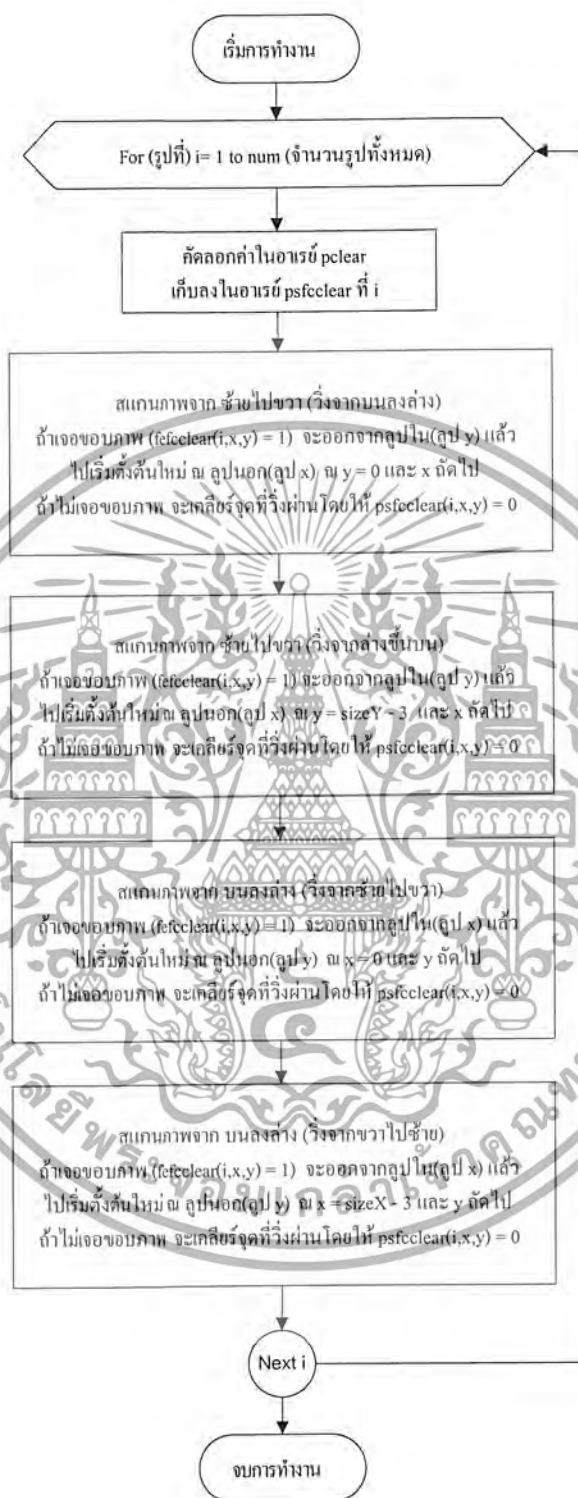 เริ่มการทำงาน
For (รูปที่) i= 1 to num (จำนวนรูปทั้งหมด)
คัดลอกค่าในอาเรย์ pclear
เก็บลงในอาเรย์ psfcclear ที่ i
สแกนภาพจาก ซ้ายไปขวา (วิ่งจากบนลงล่าง)
ถ้าเจอขอบภาพ (fefcclear(i,x,y) = 1) จะออกจากลูปใน(ลูป y) แล้ว
ไปเริ่มตั้งต้นใหม่ ณ ลูปนอก(ลูป x) ณ y = 0 และ x ถัดไป
ถ้าไม่เจอขอบภาพ จะเคลียร์จุดที่วิ่งผ่านโดยให้ psfcclear(i,x,y) = 0
สแกนภาพจาก ซ้ายไปขวา (วิ่งจากล่างขึ้นบน)
ถ้าเจอขอบภาพ (fefcclear(i,x,y) = 1) จะออกจากลูปใน(ลูป y) แล้ว
ไปเริ่มตั้งต้นใหม่ ณ ลูปนอก(ลูป x) ณ y = sizeY - 3 และ x ถัดไป
ถ้าไม่เจอขอบภาพ จะเคลียร์จุดที่วิ่งผ่านโดยให้ psfcclear(i,x,y) = 0
สแกนภาพจาก บนลงล่าง (วิ่งจากซ้ายไปขวา)
ถ้าเจอขอบภาพ (fefcclear(i,x,y) = 1) จะออกจากลูปใน(ลูป x) แล้ว
ไปเริ่มตั้งต้นใหม่ ณ ลูปนอก(ลูป y) ณ x = 0 และ y ถัดไป
ถ้าไม่เจอขอบภาพ จะเคลียร์จุดที่วิ่งผ่านโดยให้ psfcclear(i,x,y) = 0
สแกนภาพจาก บนลงล่าง (วิ่งจากขวาไปซ้าย)
ถ้าเจอขอบภาพ (fefcclear(i,x,y) = 1) จะออกจากลูปใน(ลูป x) แล้ว
ไปเริ่มตั้งต้นใหม่ ณ ลูปนอก(ลูป y) ณ x = sizeX - 3 และ y ถัดไป
ถ้าไม่เจอขอบภาพ จะเคลียร์จุดที่วิ่งผ่านโดยให้ psfcclear(i,x,y) = 0
Next i
จบการทำงาน